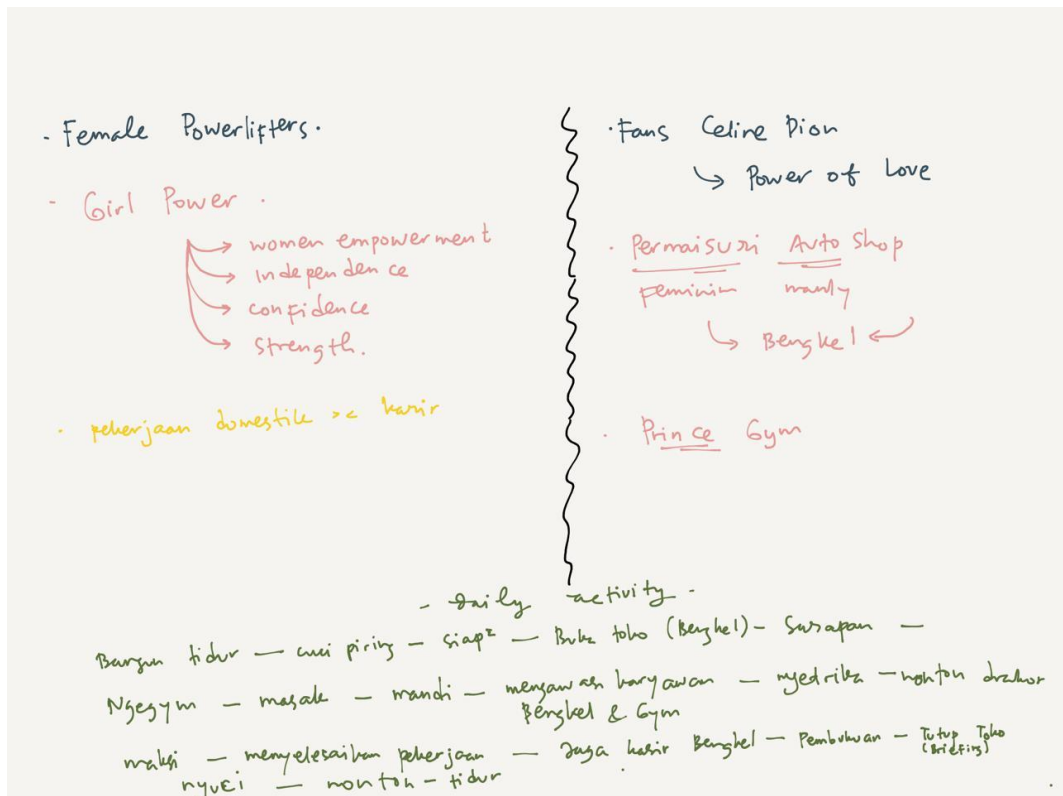 - Female Powerlifters.
- Girl Power.
women empowerment
independence
confidence
strength.
. pekerjaan domestik >< karir
. Fans Celine Dion
Power of Love
. Permaisuri Auto Shop
feminim manly
Bengkel
. Prince Gym
- daily activity -
Bangun tidur — cuci piring — siap² — Buka toko (Bengkel) — Sarapan —
Ngegym — masak — mandi — mengawasi karyawan — nyedrika — nonton drakor
Bengkel & Gym
maksi — menyelesaikan pekerjaan — Jaga kasir Bengkel — Pembukuan — Tutup Toko
(Briefing)
nyuci — nonton — tidur